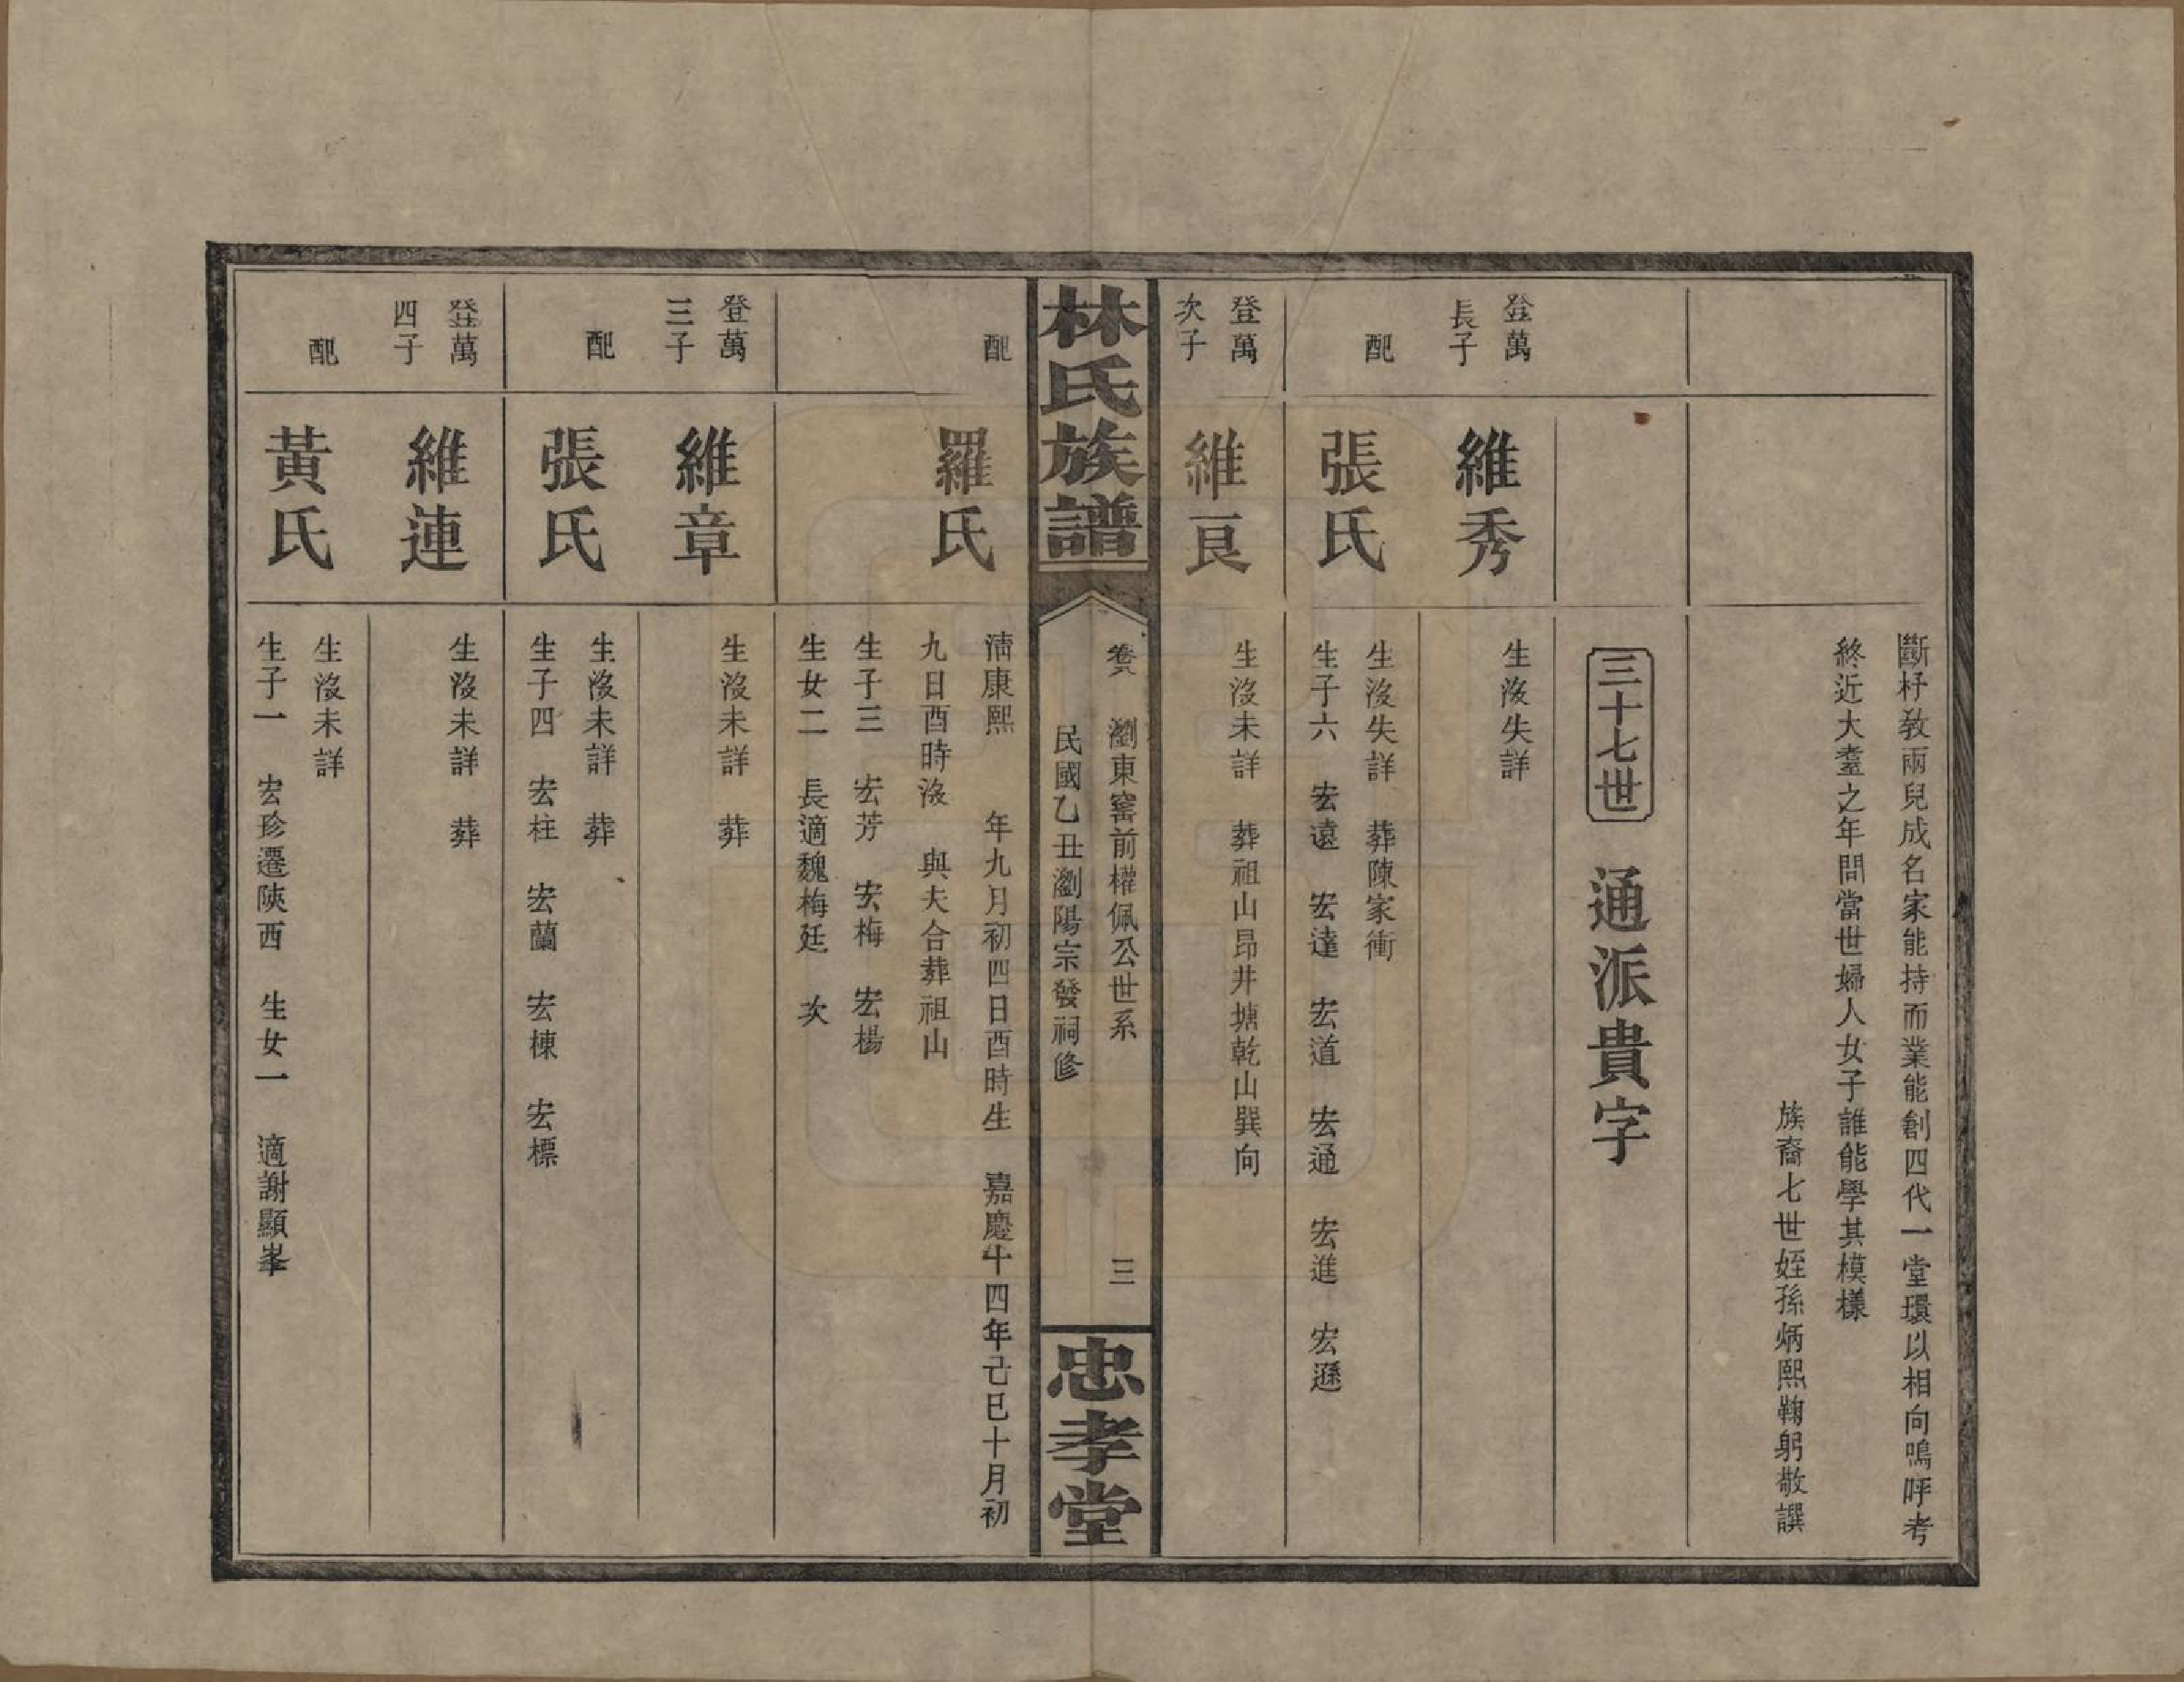 斷杼敎兩兒成名家能持而業能創四代一堂環以相向嗚呼考
終近大耋之年問當世婦人女子誰能學其模樣
族裔七世姪孫炳熙鞠躬敬譔
三十七世 通派貴字
登萬長子 維秀 生沒失詳
配 張氏 生沒失詳 葬陳家衝
生子六 宏遠 宏達 宏道 宏通 宏進 宏遜
登萬次子 維良 生沒未詳 葬祖山昂井塘乾山巽向
林氏族譜
卷六 瀏東窰前權佩公世系 三
民國乙丑瀏陽宗發祠修
忠孝堂
配 羅氏 淸康熙 年九月初四日酉時生 嘉慶十四年己巳十月初
九日酉時沒 與夫合葬祖山
生子三 宏芳 宏梅 宏楊
生女二 長適魏梅廷 次
登萬三子 維章 生沒未詳 葬
配 張氏 生沒未詳 葬
生子四 宏柱 宏蘭 宏棟 宏標
登萬四子 維連 生沒未詳 葬
配 黃氏 生沒未詳
生子一 宏珍遷陝西 生女一 適謝顯峯